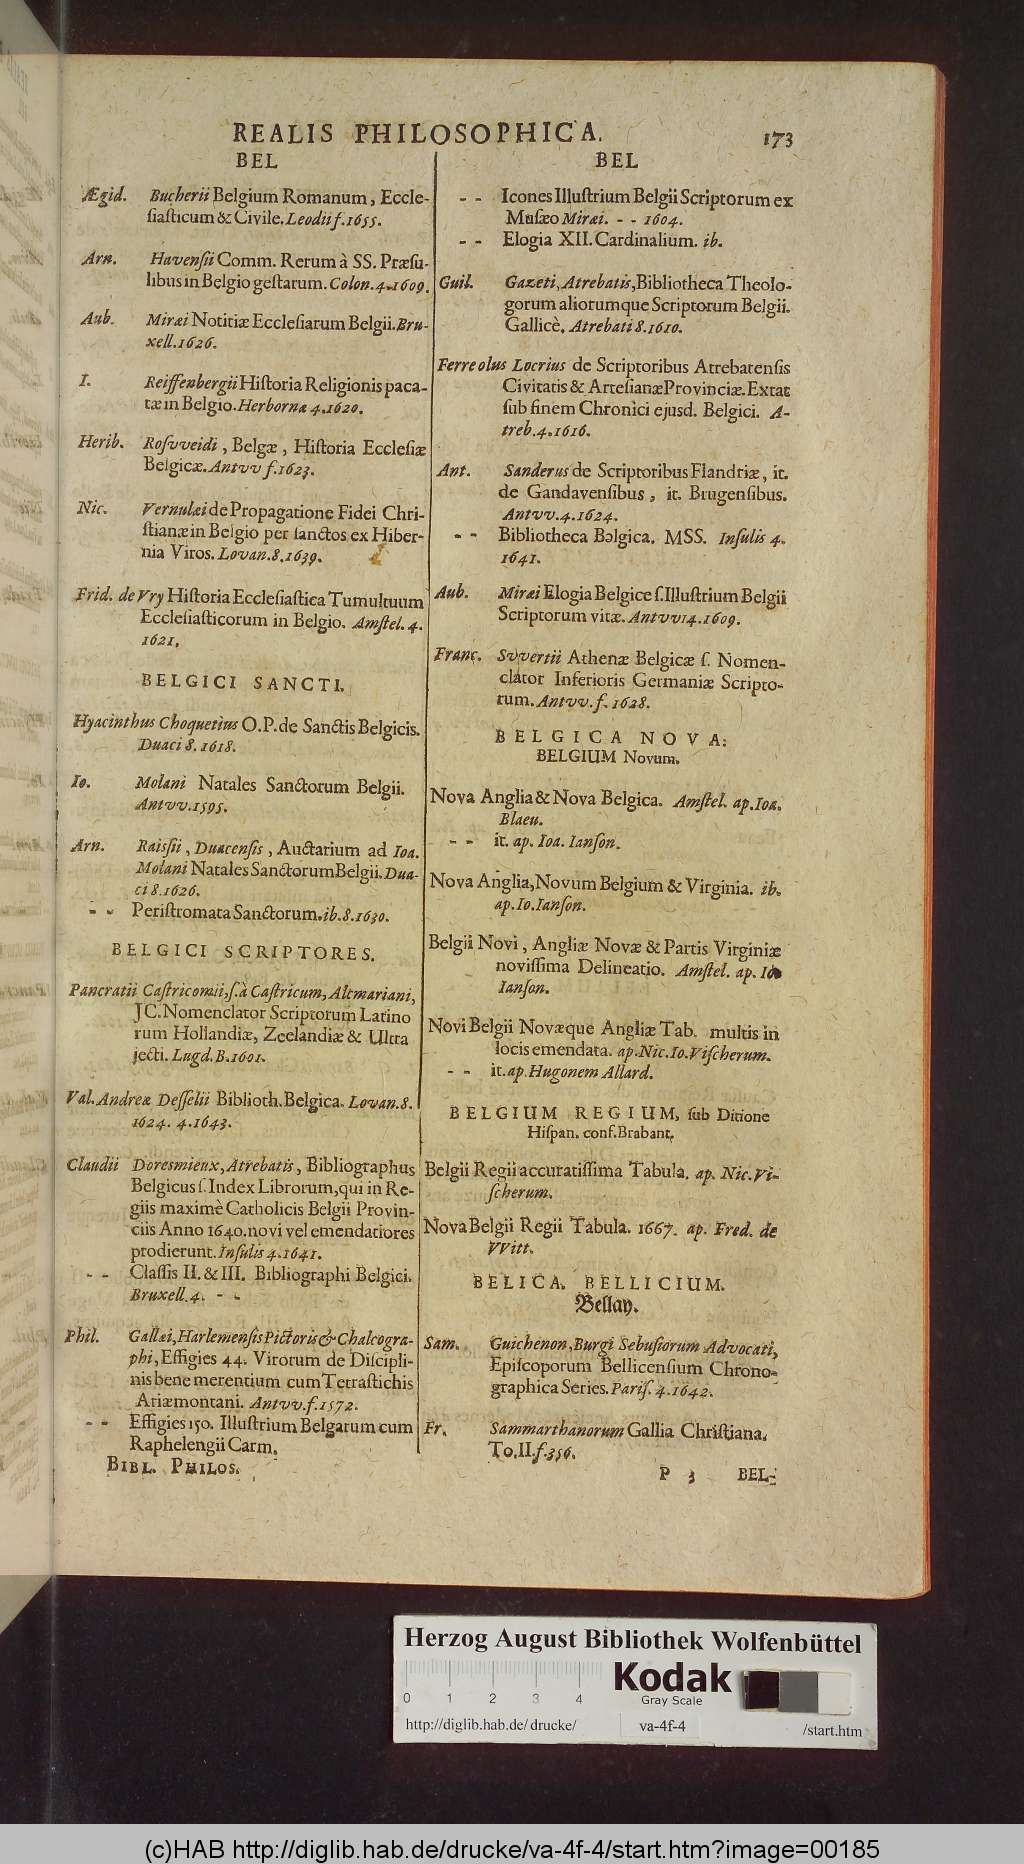 REALIS PHILOSOPHICA.
173
BEL
Ægid. Bucherii Belgium Romanum, Eccle-
ſiaſticum & Civile. Leodii f. 1655.
Arn. Havenſii Comm. Rerum à SS. Præſu-
libus in Belgio geſtarum. Colon. 4. 1609.
Aub. Miræi Notitiæ Eccleſiarum Belgii. Bru-
xell. 1626.
I. Reiffenbergii Hiſtoria Religionis paca-
tæ in Belgio. Herbornæ 4. 1620.
Herib. Roſvveidi, Belgæ, Hiſtoria Eccleſiæ
Belgicæ. Antvv f. 1623.
Nic. Vernulæi de Propagatione Fidei Chri-
ſtianæ in Belgio per ſanctos ex Hiber-
nia Viros. Lovan. 8. 1639.
Frid. de Vry Hiſtoria Eccleſiaſtica Tumultuum
Eccleſiaſticorum in Belgio. Amſtel. 4.
1621.
BELGICI SANCTI.
Hyacinthus Choquetius O.P. de Sanctis Belgicis.
Duaci 8. 1618.
Io. Molani Natales Sanctorum Belgii.
Antvv. 1595.
Arn. Raisſii, Duacenſis, Auctarium ad Ioa.
Molani Natales Sanctorum Belgii. Dua-
ci 8. 1626.
- - Periſtromata Sanctorum. ib. 8. 1630.
BELGICI SCRIPTORES.
Pancratii Caſtricomii, ſ. à Caſtricum, Alcmariani,
JC. Nomenclator Scriptorum Latino
rum Hollandiæ, Zeelandiæ & Ultra
jecti. Lugd. B. 1601.
Val. Andreæ Deſſelii Biblioth. Belgica. Lovan. 8.
1624. 4. 1643.
Claudii Doresmieux, Atrebatis, Bibliographus
Belgicus ſ. Index Librorum, qui in Re-
giis maximè Catholicis Belgii Provin-
ciis Anno 1640. novi vel emendatiores
prodierunt. Inſulis 4. 1641.
- - Claſſis II. & III. Bibliographi Belgici.
Bruxell. 4. - -
Phil. Gallæi, Harlemenſis Pictoris & Chalcogra-
phi, Effigies 44. Virorum de Diſcipli-
nis bene merentium cum Tetraſtichis
Ariæmontani. Antvv. f. 1572.
- - Effigies 150. Illuſtrium Belgarum cum
Raphelengii Carm.
BIBL. PHILOS.
BEL
- - Icones Illuſtrium Belgii Scriptorum ex
Muſæo Miræi. - - 1604.
- - Elogia XII. Cardinalium. ib.
Guil. Gazeti, Atrebatis, Bibliotheca Theolo-
gorum aliorumque Scriptorum Belgii.
Gallicè. Atrebati 8. 1610.
Ferreolus Locrius de Scriptoribus Atrebatenſis
Civitatis & Arteſianæ Provinciæ. Extat
ſub finem Chronici ejusd. Belgici. A-
treb. 4. 1616.
Ant. Sanderus de Scriptoribus Flandriæ, it.
de Gandavenſibus, it. Brugenſibus.
Antvv. 4. 1624.
- - Bibliotheca Belgica. MSS. Inſulis 4.
1641.
Aub. Miræi Elogia Belgice ſ. Illuſtrium Belgii
Scriptorum vitæ. Antvv 4. 1609.
Franc. Svvertii Athenæ Belgicæ ſ. Nomen-
clator Inferioris Germaniæ Scripto-
rum. Antvv. f. 1628.
BELGICA NOVA:
BELGIUM Novum.
Nova Anglia & Nova Belgica. Amſtel. ap. Ioa.
Blaeu.
- - it. ap. Ioa. Ianſon.
Nova Anglia, Novum Belgium & Virginia. ib.
ap. Io. Ianſon.
Belgii Novi, Angliæ Novæ & Partis Virginiæ
noviſſima Delineatio. Amſtel. ap. Io
Ianſon.
Novi Belgii Novæque Angliæ Tab. multis in
locis emendata. ap. Nic. Io. Viſcherum.
- - it. ap. Hugonem Allard.
BELGIUM REGIUM, ſub Ditione
Hiſpan. conf. Brabant.
Belgii Regii accuratiſſima Tabula. ap. Nic. Vi-
ſcherum.
Nova Belgii Regii Tabula. 1667. ap. Fred. de
VVitt.
BELICA. BELLICIUM.
Bellay.
Sam. Guichenon, Burgi Sebuſiorum Advocati,
Epiſcoporum Bellicenſium Chrono-
graphica Series. Pariſ. 4. 1642.
Fr. Sammarthanorum Gallia Chriſtiana.
To. II. f. 356.
P 3 BEL-
Herzog August Bibliothek Wolfenbüttel
0 1 2 3 4
Kodak
Gray Scale
http://diglib.hab.de/drucke/ va-4f-4 /start.htm
(c)HAB http://diglib.hab.de/drucke/va-4f-4/start.htm?image=00185